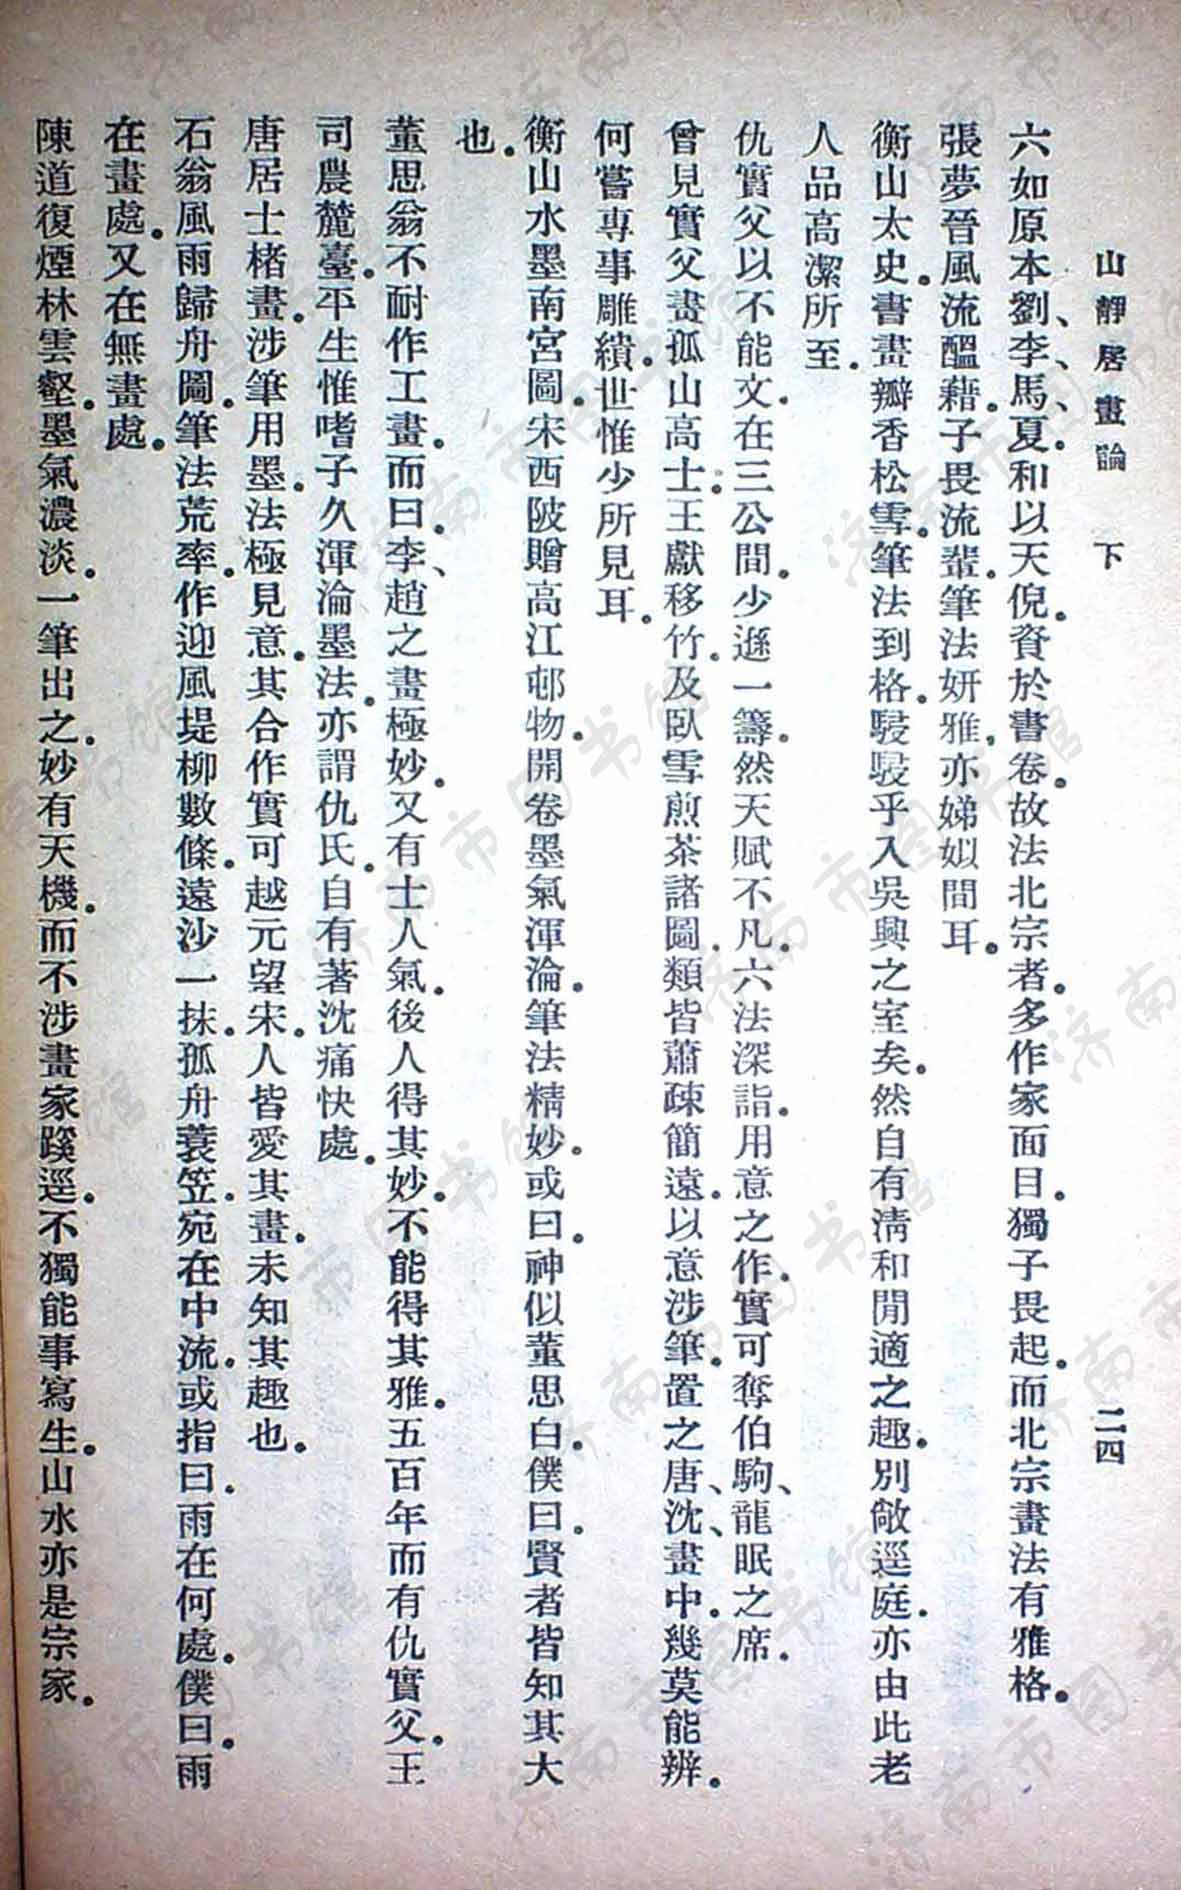 山靜居畫論　下　二四
六如原本劉、李、馬、夏、和以天倪。資於書卷。故法北宗者。多作家面目。獨子畏起。而北宗畫法有雅格。
張夢晉風流醞藉。子畏流輩。筆法妍雅。亦娣姒間耳。
衡山太史。書畫瓣香松雪。筆法到格。駸駸乎入吳興之室矣。然自有清和閒適之趣。別敞逕庭。亦由此老
人品高潔所至。
仇實父以不能文。在三公間。少遜一籌。然天賦不凡。六法深詣。用意之作。實可奪伯駒、龍眠之席。
曾見實父畫孤山高士。王獻移竹。及臥雪煎茶諸圖。類皆蕭疎簡遠。以意涉筆。置之唐、沈、畫中。幾莫能辨。
何嘗專事雕繢。世惟少所見耳。
衡山水墨南宮圖。宋西陂贈高江邨物。開卷墨氣渾淪。筆法精妙。或曰。神似董思白。僕曰。賢者皆知其大
也。
董思翁不耐作工畫。而曰。李、趙之畫極妙。又有士人氣。後人得其妙。不能得其雅。五百年而有仇實父。王
司農麓臺。平生惟嗜子久渾淪墨法。亦謂仇氏。自有著沈痛快處。
唐居士楮畫。涉筆用墨。法極見意。其合作實可越元望宋。人皆愛其畫。未知其趣也。
石翁風雨歸舟圖。筆法荒率。作迎風堤柳數條。遠沙一抹。孤舟蓑笠。宛在中流。或指曰。雨在何處。僕曰。雨
在畫處。又在無畫處。
陳道復煙林雲壑。墨氣濃淡。一筆出之。妙有天機。而不涉畫家蹊逕。不獨能事寫生。山水亦是宗家。
济南市图书馆